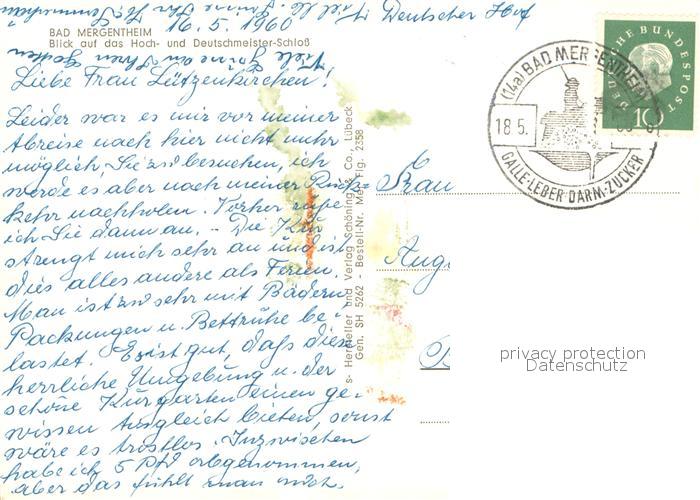 Deutscher Hof
16.5.1960
BAD MERGENTHEIM
Blick auf das Hoch- und Deutschmeister-Schloß
Liebe Frau Lützenkirchen!
Leider war es mir vor meiner
Abreise nach hier nicht mehr
möglich, Sie zu besuchen, ich
werde es aber nach meiner Rück=
kehr nachholen. Vorher rufe
ich Sie dann an. - Die Kur
strengt mich sehr an und ist
dies alles andere als Ferien.
Man ist zu sehr mit Bädern,
Packungen u. Bettruhe be-
lastet. Es ist gut, daß die
herrliche Umgebung u. der
schöne Kurgarten einen ge-
wissen Ausgleich bieten, sonst
wäre es trostlos. Inzwischen
habe ich 5 Pfd abgenommen,
aber das fühlt man nicht.
Viele Grüße an Ihren Gatten
Hersteller und Verlag Schöning & Co., Lübeck
Gen. SH 5262 - Bestell-Nr. Mer. Fig. 2358
Frau
(14a) BAD MERGENTHEIM
18.5.
GALLE-LEBER-DARM-ZUCKER
DEUTSCHE BUNDESPOST
10
privacy protection
Datenschutz